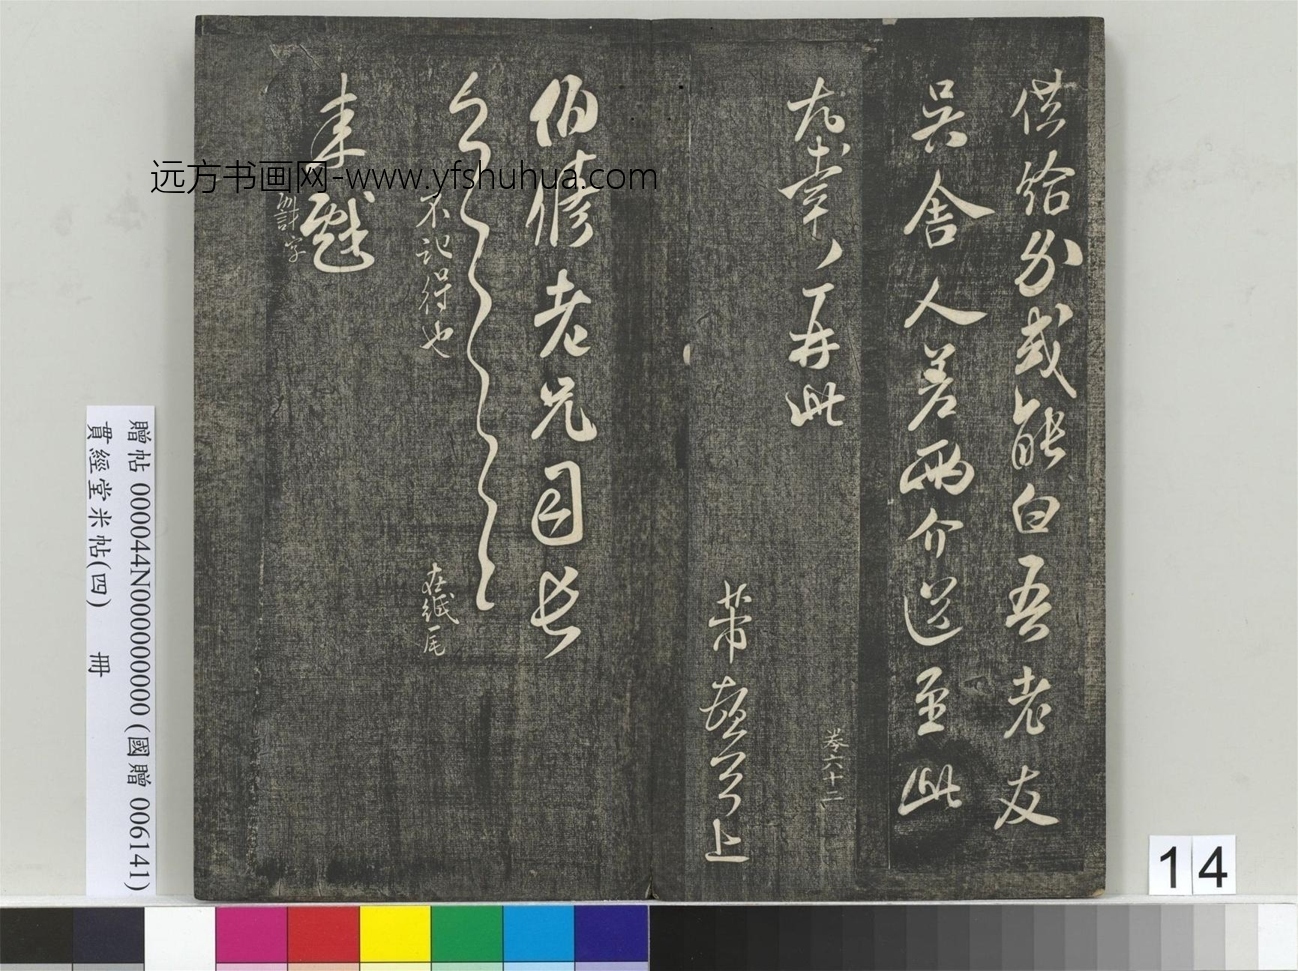 供給分或能白吾老友
吳舍人差兩介送至此
尤幸、再此
芾頓首上
卷六十二
伯修老兄司長
不記得也
在紙尾
来戲
剩討字
远方书画网-www.yfshuhua.com
贈帖 000044N000000000 (國贈 006141)
貫經堂米帖(四) 冊
14